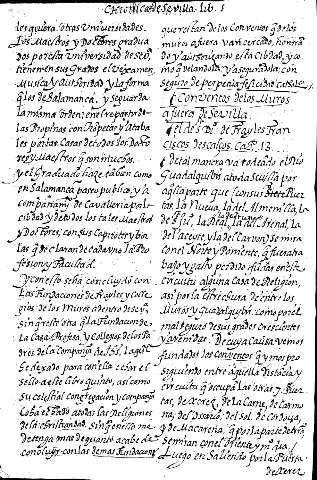 Chronica de Sevilla. lib. 5
les quiera. otras Universidades.
Los Maestros y Doctores gradua
dos por esta Universidad de Seva
tienen en sus Grados el Vexamen
Musica y autoridad y la forma
q̃ los de Salamanca, y se guarda
la misma orden; en el repartir de
las Propinas con Trompetas y Ataba
les por las Casas de todos los Docto
res y Maestros que son muchos.
y el Graduado haze tambien como
en Salamanca paseo publico, y a
compañam.to de Cavalleria por la
ciudad y de todos los tales Maestros
y Doctores, con sus Capirotes y bor
las que declaran de cada uno la Pro
fesion y Facultad.
Y con esto se ha concluydo con
Las Fundaciones de Frayles y Cole
gios de los Muros adentro desta ciu.d
sin q̃ reste otra q̃ la Fundacion de
La Casa Profesa, y collegios de los Pa
dres de la Compañia de Jesus. La qual
se dexado para con ella echar el
sello a este libro quinto, así como
su celestial congregacion y Compañia
lo ha echado a todas las Religiones
de la cristiandad. sin q̃ en esto me
detenga mas de quanto acabe de
concluyr con las demas Fundaciones
que restan de los Conventos q̃ de los
muros afuera van cercado, honran
do y autorizando esta Cibdad, y co
mo q̃ velandola y asegurandola, con
seguro de perpetua felicidad catholica.
Conventos de los Muros
afuera de Sevilla.
el de S. D.o de Frayles Fran
ciscos descalços. cap. 13.
De tal manera va rodeado el Rio
Guadalquibir a toda Sevilla por
aquella parte que sus siete Puer
tas, La Nueva, la del Almenilla, la
de Goles, la Real, la de Triana, la del Arenal, la
del aceyte, y la del Carbon, se mira
con el Norte y Poniente, que fuera tra
bajo y gasto perdido edificar en este
circuito alguna casa de Religion,
asi por la estrechura de entre los
Muros y Guadalquibir como por el
mal seguro de sus grandes crescientes
y avenidas. De cuya causa vemos
fundados los conventos que nos pro
siguiendo entre aquella distancia y
circuito q̃ ocupa las otras, 7 Puer
tas, de Xerez, de la Carne, de Carmo
na, del Osario, del sol, de Cordova,
y de Macarena, que por la parte de tierra
se miran con el Oriente y medio dia.
Luego en saliendo por la Puerta
de Xerez